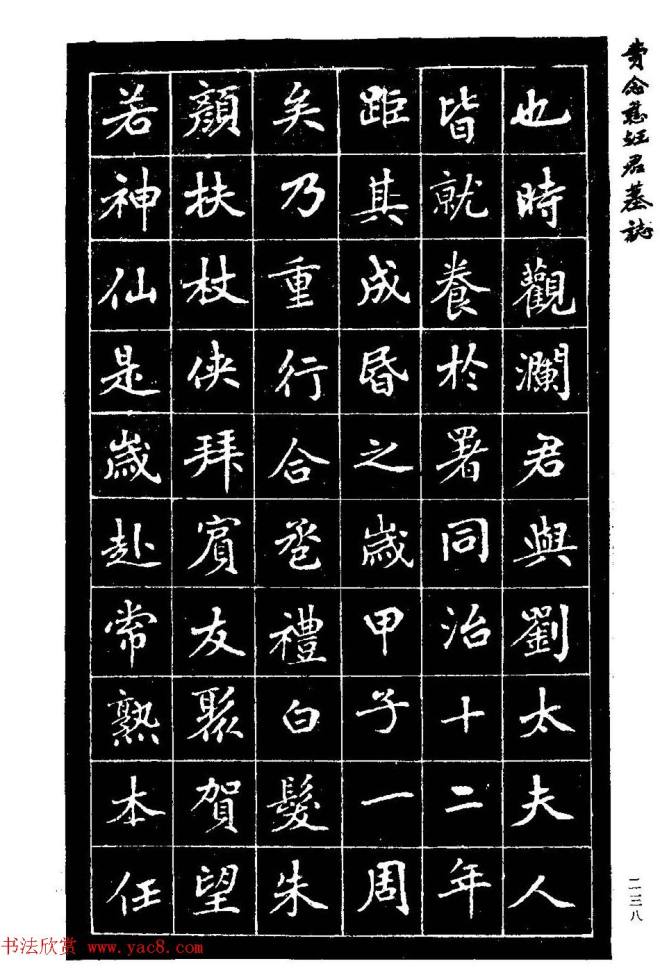 費念慈汪君墓誌
也時觀瀾君與劉太夫人
皆就養於署同治十二年
距其成昏之歲甲子一周
矣乃重行合巹禮白髮朱
顏扶杖俠拜賓友聚賀望
若神仙是歲赴常熟本任
二三八
书法欣赏 www.yac8.com